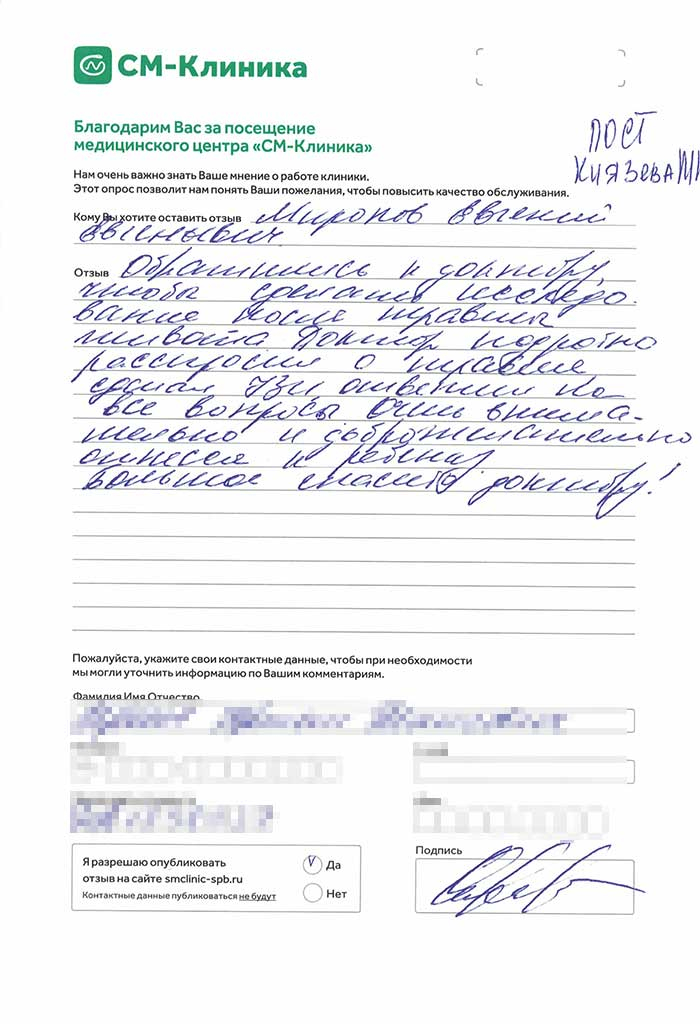 СМ-Клиника
Благодарим Вас за посещение
медицинского центра «СМ-Клиника»
ПОСТ
КНЯЗЕВА
Нам очень важно знать Ваше мнение о работе клиники.
Этот опрос позволит нам понять Ваши пожелания, чтобы повысить качество обслуживания.
Кому Вы хотите оставить отзыв Миропов Евгений
Отзыв Обратились к доктору,
чтобы сделать исследо-
вание после травмы
живота Доктор подробно
расспросил о травме
сделал УЗИ ответил на
все вопросы Очень внима-
тельно и доброжелательно
отнесся к ребенку
Большое спасибо доктору!
Пожалуйста, укажите свои контактные данные, чтобы при необходимости
мы могли уточнить информацию по Вашим комментариям.
Фамилия Имя Отчество
Я разрешаю опубликовать
отзыв на сайте smclinic-spb.ru
Контактные данные публиковаться не будут
V Да
Нет
Подпись